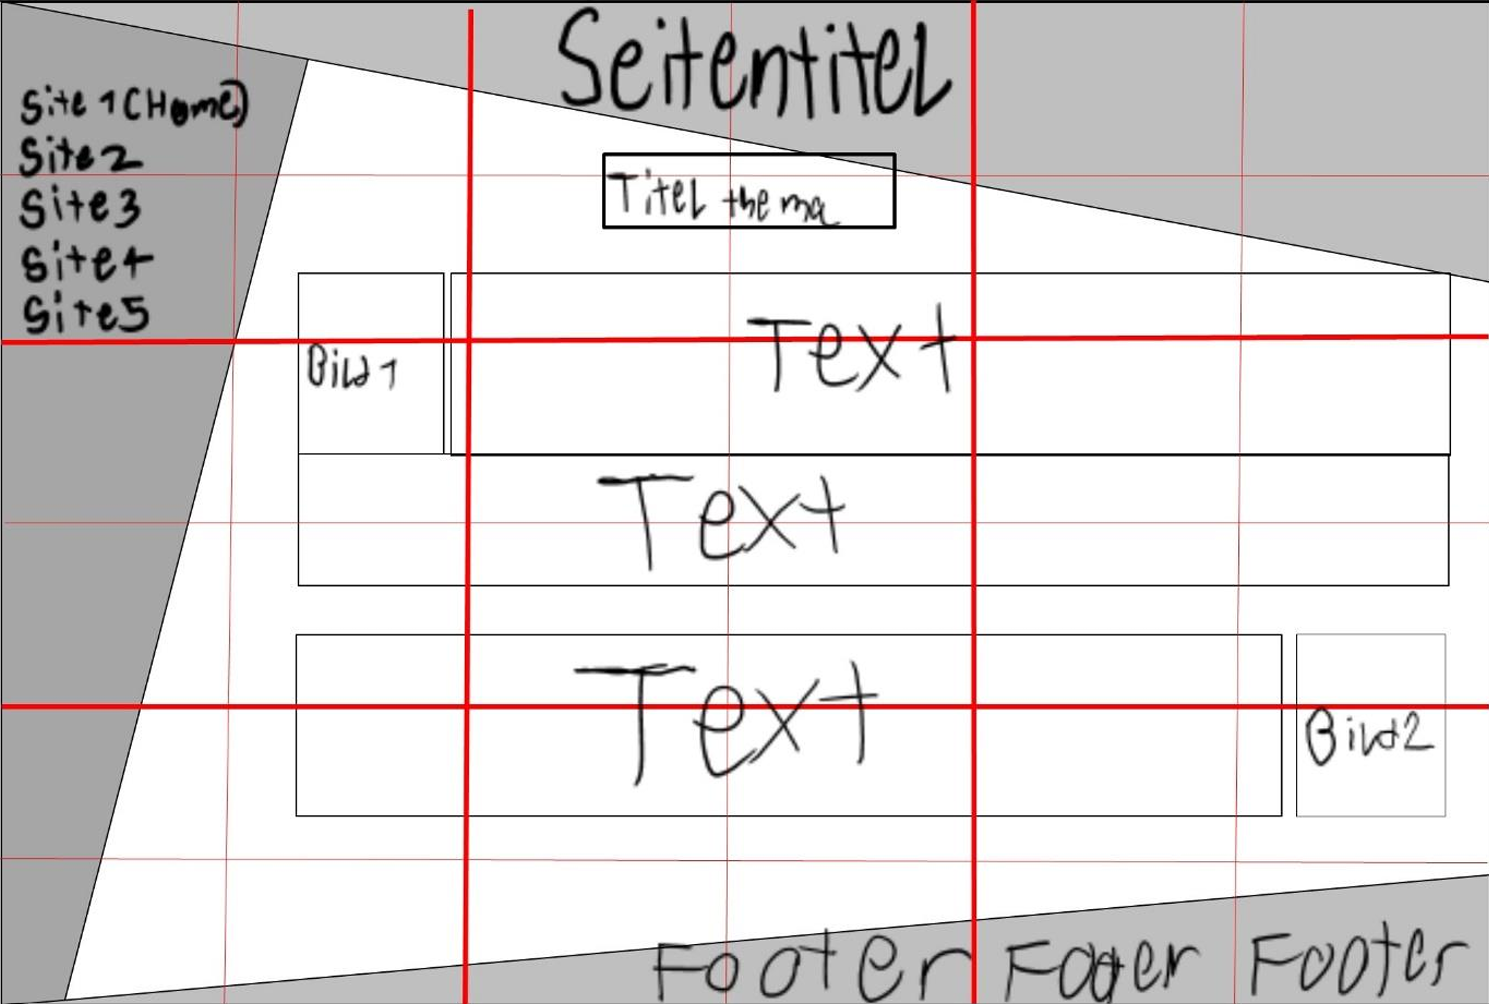 Seitentitel
Site 1 (Home)
Site2
Site3
Site4
Site5
Titel thema
Bild 1
Text
Text
Text
Bild2
Footer Footer Footer